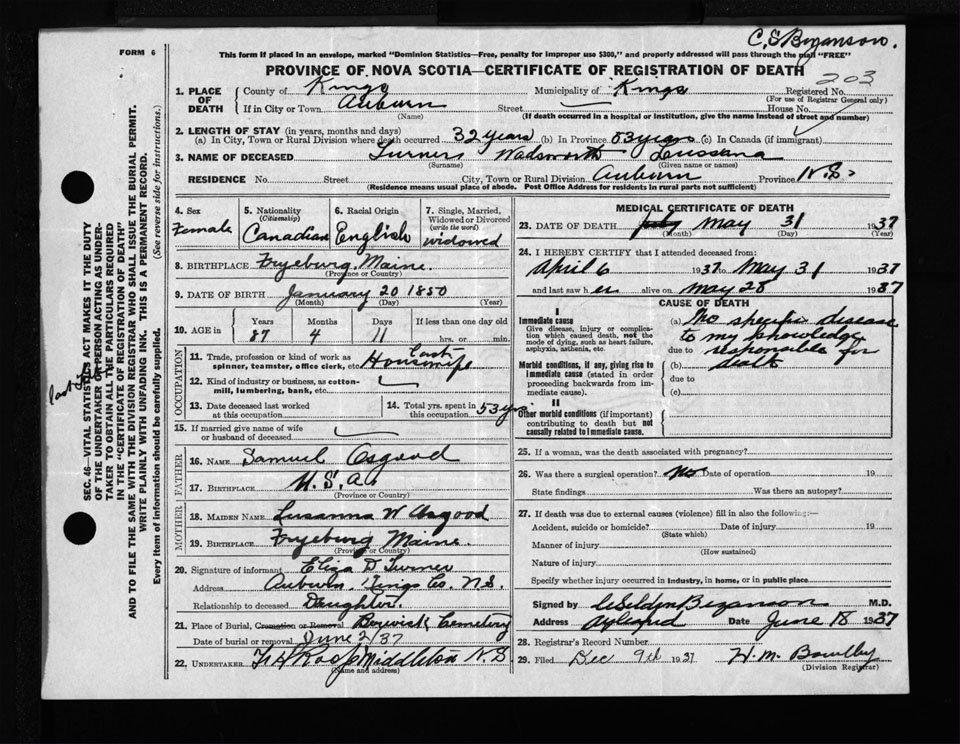 C. S. Bezanson.
FORM 6
This form if placed in an envelope, marked "Dominion Statistics—Free, penalty for improper use $300," and properly addressed will pass through the mail "FREE"
PROVINCE OF NOVA SCOTIA—CERTIFICATE OF REGISTRATION OF DEATH
203
1. PLACE OF DEATH
County of Kings Municipality of Kings Registered No.
(For use of Registrar General only)
If in City or Town Auburn Street House No.
(Name) (If death occurred in a hospital or institution, give the name instead of street and number)
2. LENGTH OF STAY (in years, months and days)
(a) In City, Town or Rural Division where death occurred 32 years (b) In Province 53 years (c) In Canada (if immigrant)
3. NAME OF DECEASED Turner Wadsworth
(Surname) (Given name or names)
RESIDENCE No. Street City, Town or Rural Division Auburn Province N.S.
(Residence means usual place of abode. Post Office Address for residents in rural parts not sufficient)
4. Sex Female
5. Nationality (Citizenship) Canadian
6. Racial Origin English
7. Single, Married, Widowed or Divorced (write the word) widowed
8. BIRTHPLACE Fryeburg, Maine.
(Province or Country)
9. DATE OF BIRTH January 20 1850
(Month) (Day) (Year)
10. AGE in Years 87 Months 4 Days 11 If less than one day old hrs. or min.
OCCUPATION
11. Trade, profession or kind of work as spinner, teamster, office clerk, etc. Housewife
12. Kind of industry or business, as cotton-mill, lumbering, bank, etc.
13. Date deceased last worked at this occupation
14. Total yrs. spent in this occupation 53 yrs
15. If married give name of wife or husband of deceased
FATHER
16. NAME Samuel Osgood
17. BIRTHPLACE U.S.A.
(Province or Country)
MOTHER
18. MAIDEN NAME Susanna W Osgood
19. BIRTHPLACE Fryeburg Maine.
(Province or Country)
20. Signature of informant Eliza D Turner
Address Auburn, Kings Co. N.S.
Relationship to deceased Daughter.
21. Place of Burial, Cremation or Removal Berwick Cemetery
Date of burial or removal June 2/37
22. UNDERTAKER Middleton N.S
(Name and address)
MEDICAL CERTIFICATE OF DEATH
23. DATE OF DEATH May 31 1937
(Month) (Day) (Year)
24. I HEREBY CERTIFY that I attended deceased from:
April 6 1937 to May 31 1937
and last saw her alive on May 28 1937
CAUSE OF DEATH
I
Immediate cause
Give disease, injury or complication which caused death, not the mode of dying, such as heart failure, asphyxia, asthenia, etc.
Morbid conditions, if any, giving rise to immediate cause (stated in order proceeding backwards from immediate cause).
II
Other morbid conditions (if important) contributing to death but not causally related to immediate cause.
(a) No specific disease
to my knowledge
due to responsible for
(b) death
due to
(c)
25. If a woman, was the death associated with pregnancy?
26. Was there a surgical operation? No Date of operation 19
State findings Was there an autopsy?
27. If death was due to external causes (violence) fill in also the following:—
Accident, suicide or homicide? Date of injury 19
(State which)
Manner of injury
(How sustained)
Nature of injury
Specify whether injury occurred in industry, in home, or in public place
Signed by Bezanson M.D.
Address Aylesford Date June 18 1937
28. Registrar's Record Number
29. Filed Dec 9th 1937
(Division Registrar)
SEC. 46—VITAL STATISTICS ACT MAKES IT THE DUTY
OF THE UNDERTAKER OR PERSON ACTING AS UNDER-
TAKER TO OBTAIN ALL THE PARTICULARS REQUIRED
IN THE "CERTIFICATE OF REGISTRATION OF DEATH"
AND TO FILE THE SAME WITH THE DIVISION REGISTRAR WHO SHALL ISSUE THE BURIAL PERMIT.
WRITE PLAINLY WITH UNFADING INK. THIS IS A PERMANENT RECORD.
Every item of information should be carefully supplied.
(See reverse side for instructions.)